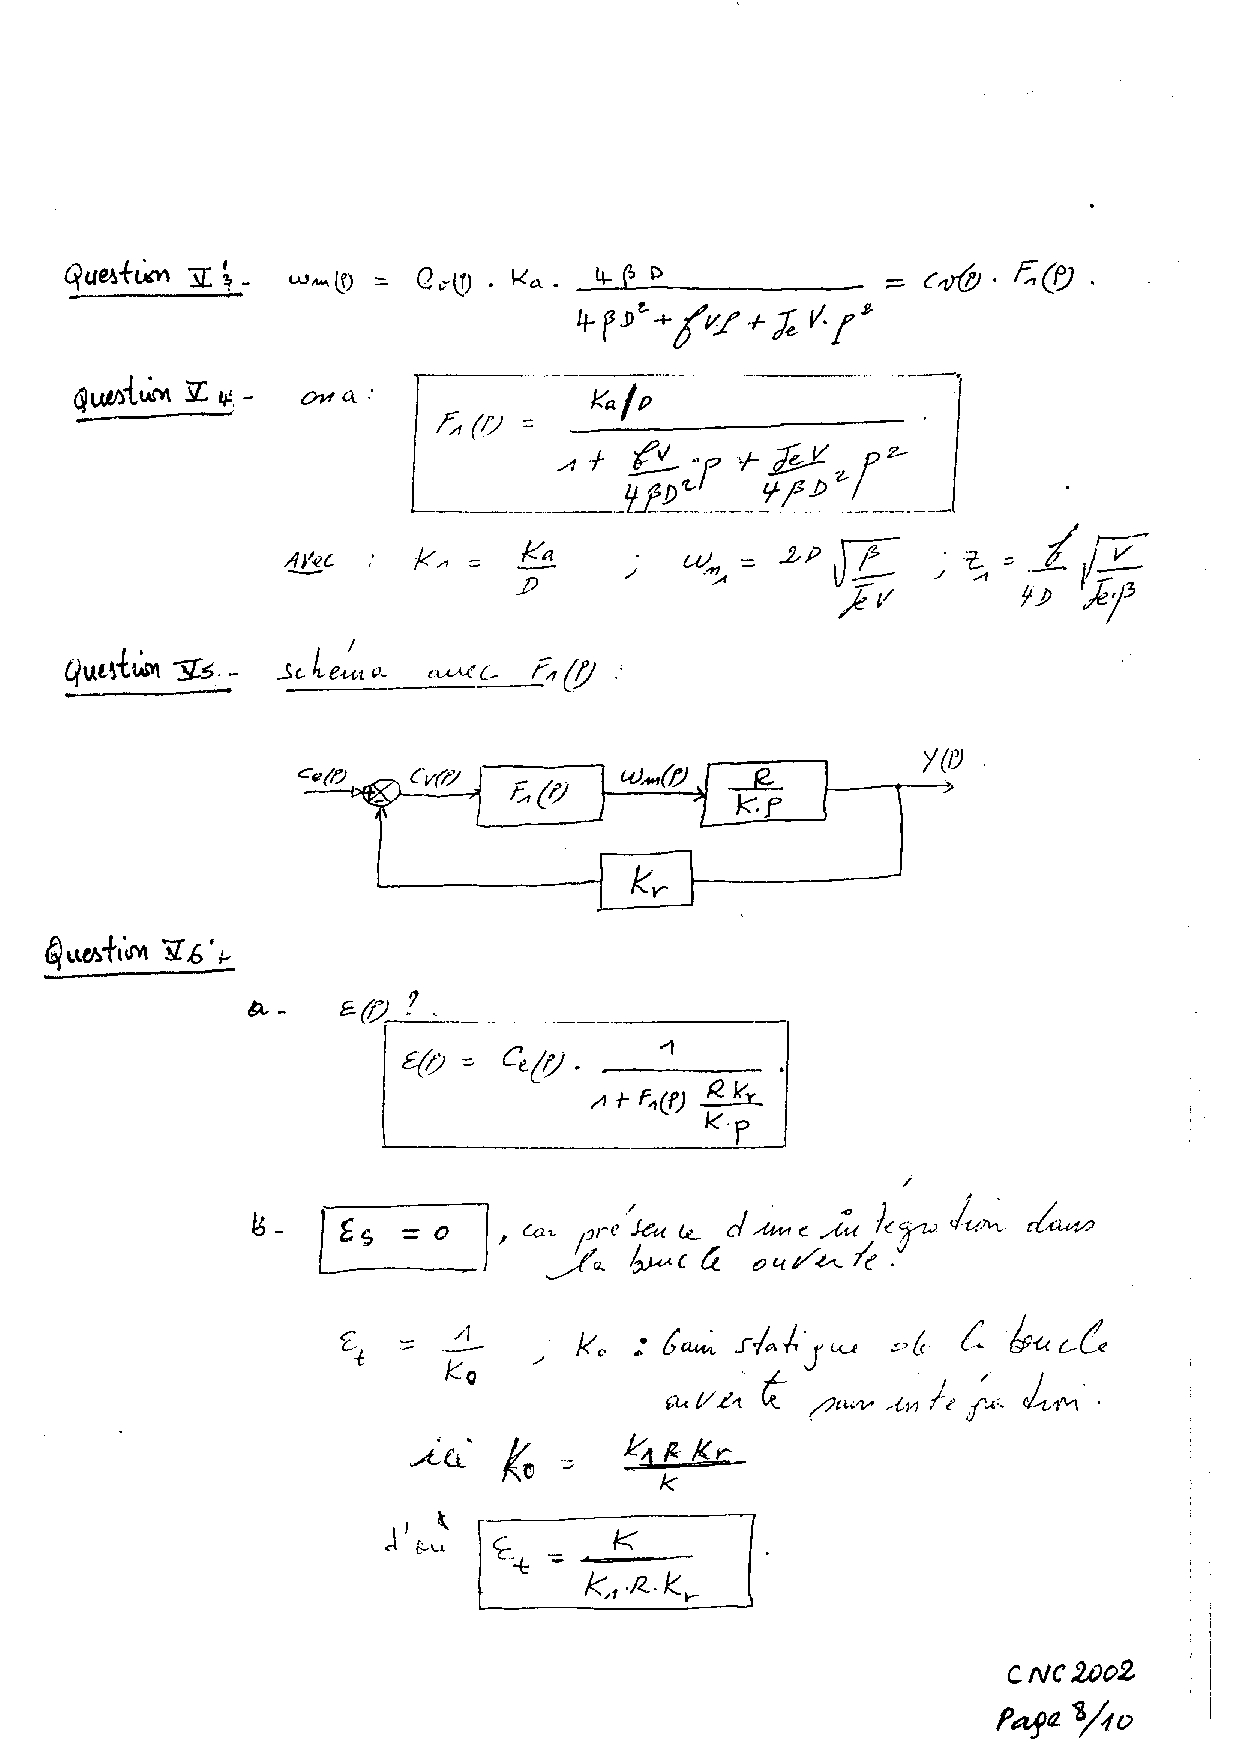 Question V 3.- ωm(p) = Cv(p) . Ka . 4βD / (4βD² + fVp + JeV.p²) = Cv(p) . F1(p) .
Question V 4.- on a :
F1(p) = (Ka/D) / (1 + (fV / 4βD²).p + (JeV / 4βD²) p²) .
Avec : K1 = Ka / D ; ωn1 = 2D √(β / JeV) ; z1 = f / 4D √(V / Je.β)
Question V5.- schéma avec F1(p) :
Ce(p) Cv(p) F1(p) ωm(p) R / K.p Y(p)
Kr
Question V6.-
a - ε(p) ? .
ε(p) = Ce(p) . 1 / (1 + F1(p) R Kr / K.p) .
b - εs = 0 , car présence d'une intégration dans
la boucle ouverte.
εt = 1 / K0 , K0 : Gain statique de la boucle
ouverte sans intégration .
ici K0 = K1 R Kr / K
d'où εt = K / K1.R.Kr .
CNC 2002
Page 8/10